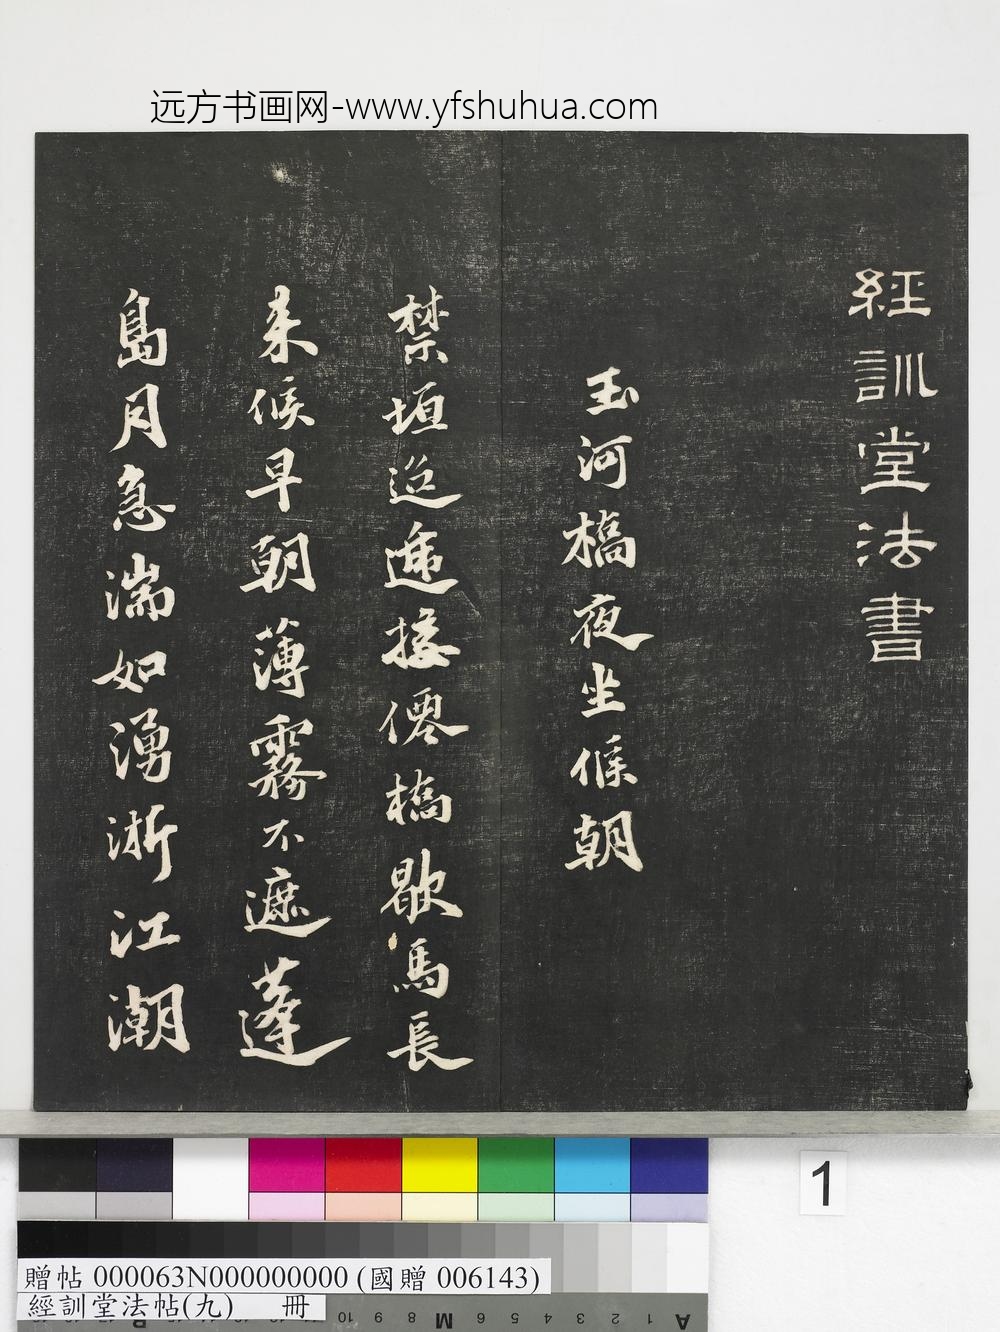 远方书画网-www.yfshuhua.com
經訓堂法書
玉河橋夜坐候朝
禁垣迢遞接僊橋歇馬長
來候早朝薄霧不遮蓬
島月急湍如湧浙江潮
1
贈帖 000063N000000000 (國贈 006143)
經訓堂法帖(九) 冊
10 9 8 M 6 5 4 3 2 1 A